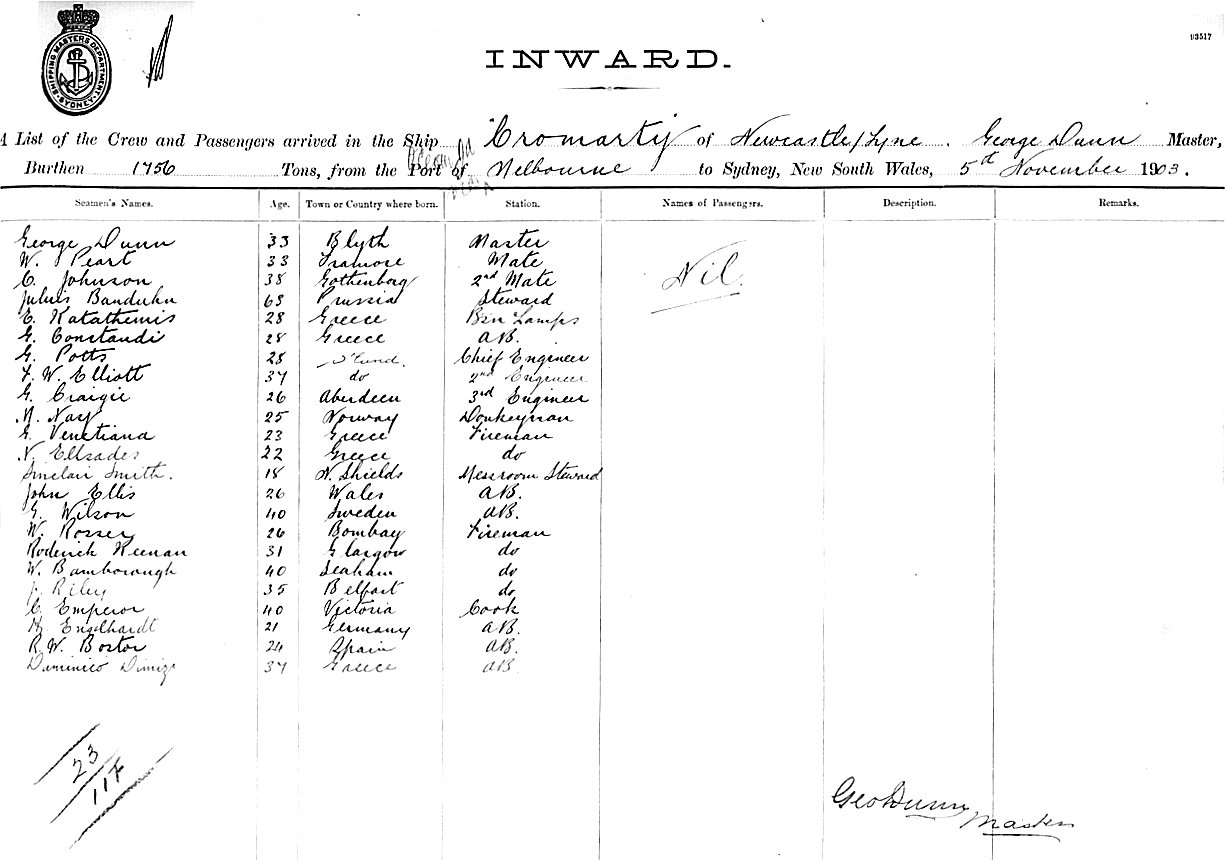 SHIPPING MASTERS DEPARTMENT. SYDNEY.
03517
INWARD.
A List of the Crew and Passengers arrived in the Ship Cromarty of Newcastle/Tyne. George Dunn Master,
Burthen 1756 Tons, from the Port of Melbourne to Sydney, New South Wales, 5th November 1903.
Seamen's Names. Age. Town or Country where born. Station. Names of Passengers. Description. Remarks.
George Dunn 33 Blyth Master
W. Peart 33 Tramore Mate
Nil.
C. Johnson 38 Gothenborg 2nd Mate
Julius Banduhn 63 Prussia Steward
E. Katathemis 28 Greece Bsn Lamps
G. Constandi 28 Greece AB.
G. Potts 28 S'land. Chief Engineer
F. W. Elliott 37 do 2nd Engineer
G. Craigie 26 Aberdeen 3rd Engineer
N. Nass 25 Norway Donkeyman
G. Venetiana 23 Greece Fireman
N. Elisades 22 Greece do
Sinclair Smith. 18 N. Shields Messroom Steward
John Ellis 26 Wales AB.
G. Wilson 40 Sweden AB.
W. Rosser 26 Bombay Fireman
Roderick Keenan 31 Glasgow do
W. Bamborough 40 Seaham do
J. Riley 35 Belfast do
C. Emperor 40 Victoria Cook
H. Engelhardt 21 Germany AB.
R. W. Bostor 24 Spain AB.
Dominico 37 Greece AB
23
117
Geo Dunn
Master